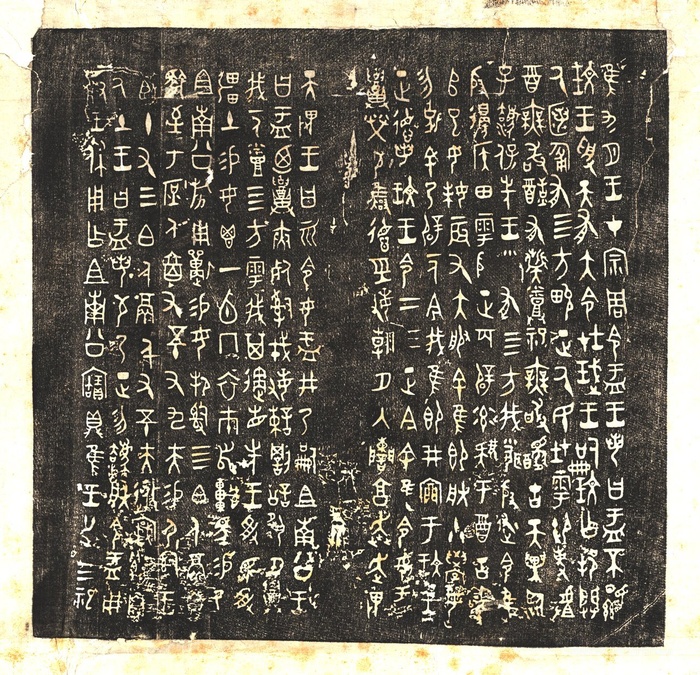 隹九月王才宗周令盂王若曰盂不顯
玟王受天有大令在珷王嗣玟乍邦闢
氒匿匍有四方畯正氒民在雩御事䖒
酉無敢酖有髭蒸祀無敢醻古天異臨
子灋保先王有四方我聞殷述令隹
殷邊侯田雩殷正百辟率肄于酉古喪
𠂤巳女妹辰又大服余隹即朕小學女
勿克余乃辟一人今我隹即井㐭于玟王
正德若玟王令二三正今余隹令女盂
召榮敬雝德巠敏朝夕入讕享奔走畏
天畏王曰而令女盂井乃嗣且南公王
曰盂廼召夾死司戎敏諫罰訟夙夕召
我一人烝四方雩我其遹省先王受民受
疆土易女鬯一卣冂衣巿舄車馬易乃
且南公旂用遱易女邦司四白人鬲自
馭至于庶人六百又五十又九夫易尸司王
臣十又三白人鬲千又五十夫遷自
氒土王曰盂若敬乃正勿灋朕令盂用
對王休用乍且南公寶鼎隹王廿又三祀